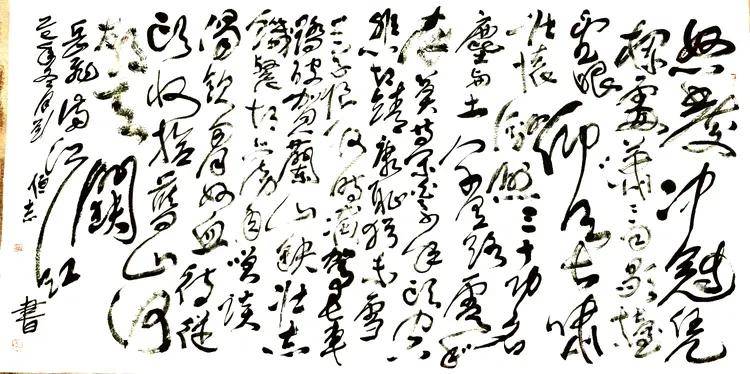 怒發冲冠凭
栏處蕭蕭雨歇抬
望眼仰天长啸
壮懷激烈三十功名
塵与土八千里路雲和
月莫等闲白了少年头空
悲切靖康耻犹未雪
臣子恨何时灭驾长車
踏破贺蘭山缺壮志
饥餐胡虏肉笑谈
渴饮匈奴血待从
头收拾舊山河
朝天阙
岳飛满江红
伯志書